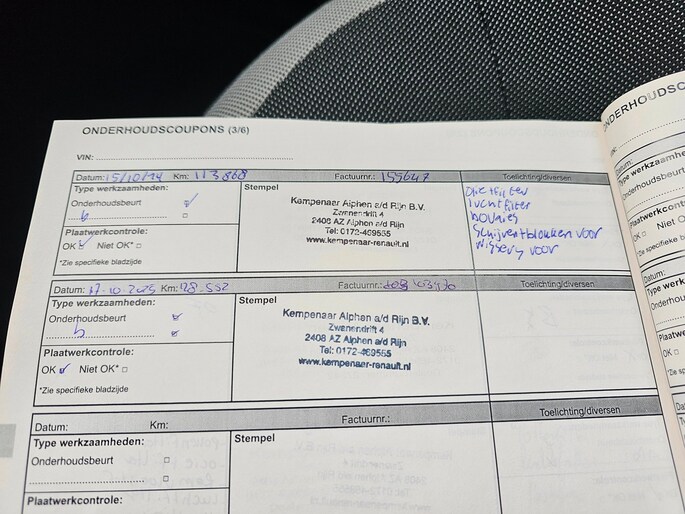 ONDERHOUDSCOUPONS (3/6)
VIN:
Datum: 15/10/24 Km: 113 868 Factuurnr.: 155647 Toelichting/diversen
Type werkzaamheden: Stempel
Onderhoudsbeurt
Plaatwerkcontrole:
OK Niet OK*
*Zie specifieke bladzijde
Kempenaar Alphen a/d Rijn B.V.
Zwanendrift 4
2408 AZ Alphen a/d Rijn
Tel: 0172-469555
www.kempenaar-renault.nl
luchtfilter
bougies
Schijven + blokken voor
wissers voor
Datum: 17-10-2025 Km: 128.552 Factuurnr.: Toelichting/diversen
Type werkzaamheden: Stempel
Onderhoudsbeurt
Plaatwerkcontrole:
OK Niet OK*
*Zie specifieke bladzijde
Kempenaar Alphen a/d Rijn B.V.
Zwanendrift 4
2408 AZ Alphen a/d Rijn
Tel: 0172-469555
www.kempenaar-renault.nl
Datum: Km: Factuurnr.: Toelichting/diversen
Type werkzaamheden: Stempel
Onderhoudsbeurt
Plaatwerkcontrole: